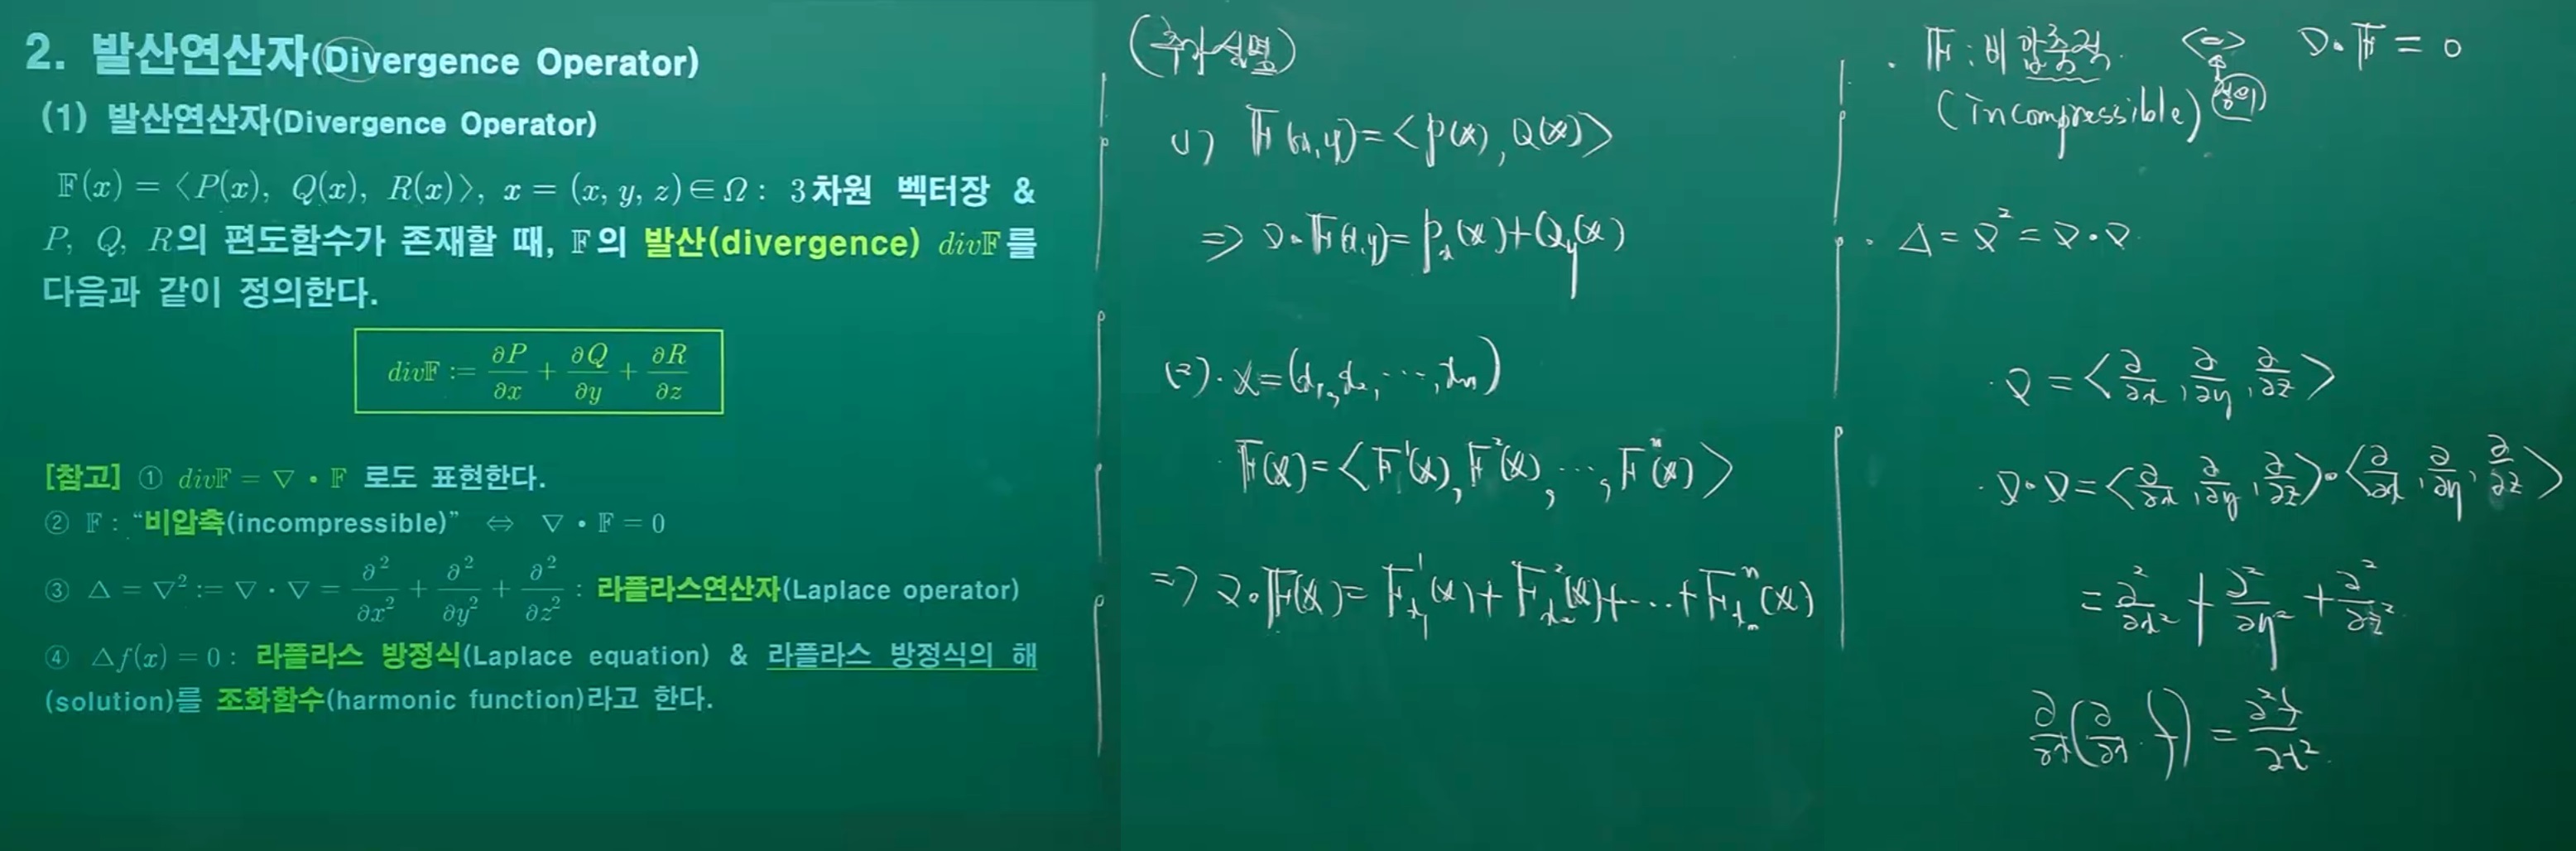 2. 발산연산자(Divergence Operator)
(1) 발산연산자(Divergence Operator)
𝔽(x) = ⟨P(x), Q(x), R(x)⟩, x = (x, y, z) ∈ Ω : 3차원 벡터장 &
P, Q, R의 편도함수가 존재할 때, 𝔽의 발산(divergence) div𝔽를
다음과 같이 정의한다.
div𝔽 := ∂P/∂x + ∂Q/∂y + ∂R/∂z
[참고] ① div𝔽 = ∇ • 𝔽 로도 표현한다.
② 𝔽 : “비압축(incompressible)” ⇔ ∇ • 𝔽 = 0
③ Δ = ∇² := ∇ · ∇ = ∂²/∂x² + ∂²/∂y² + ∂²/∂z² : 라플라스연산자(Laplace operator)
④ Δf(x) = 0 : 라플라스 방정식(Laplace equation) & 라플라스 방정식의 해
(solution)를 조화함수(harmonic function)라고 한다.
(추가설명)
(1) 𝔽(x, y) = ⟨P(x), Q(x)⟩
⇒ ∇ • 𝔽(x, y) = Pₓ(x) + Q_y(x)
(2) · x = (x₁, x₂, ⋯, xₙ)
· 𝔽(x) = ⟨F¹(x), F²(x), ⋯, Fⁿ(x)⟩
⇒ ∇ • 𝔽(x) = F¹_x₁(x) + F²_x₂(x) + ⋯ + Fⁿ_xₙ(x)
· 𝔽 : 비압축적 ⇔ ∇ • 𝔽 = 0
(incompressible) 정의
· Δ = ∇² = ∇ • ∇
· ∇ = ⟨∂/∂x, ∂/∂y, ∂/∂z⟩
· ∇ • ∇ = ⟨∂/∂x, ∂/∂y, ∂/∂z⟩ • ⟨∂/∂x, ∂/∂y, ∂/∂z⟩
= ∂²/∂x² + ∂²/∂y² + ∂²/∂z²
∂/∂x(∂/∂x · f) = ∂²f/∂x²